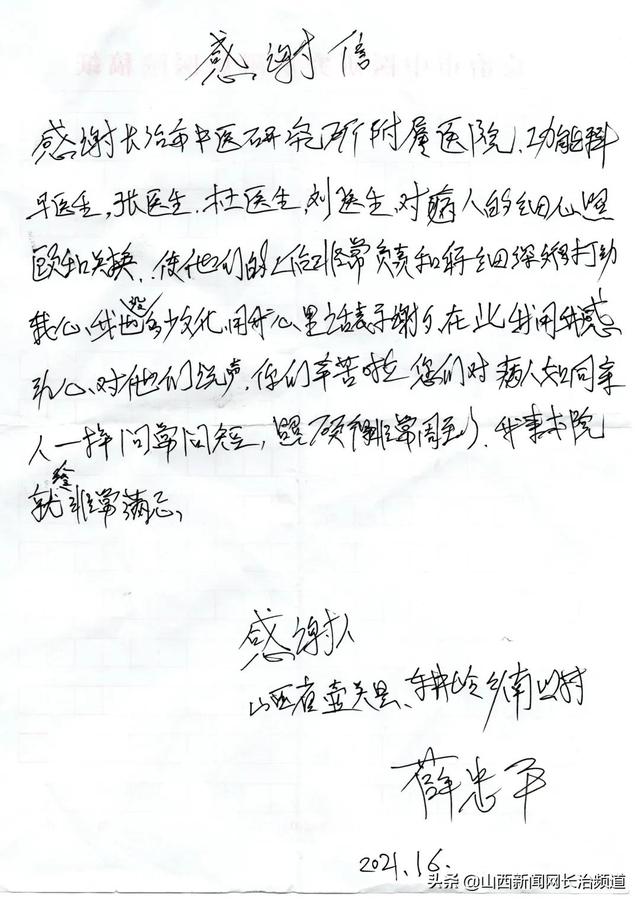 感谢信
感谢长治市中医研究所附属医院、功能科
医生,张医生、杜医生,刘医生,对病人的细心照
顾和关换、使他们的工作非常负责和仔细深深打动
我心、我也没多少文化,用我心里话表示谢了,在此我用我感
动心、对他们说声,你们辛苦啦您们对病人如同亲
人一样问常问短,照顾得非常周到、我来书院
就非常满意、
感谢人
山西省壶关县、东井岭乡南山村
薛忠平
2021.1 6.
头条@山西新闻网长治频道